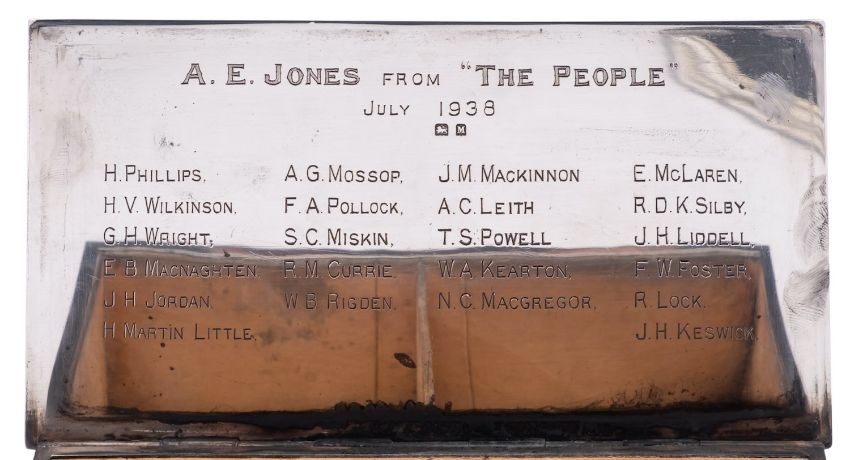 A. E. JONES FROM "THE PEOPLE"
JULY 1938
M
H. PHILLIPS. A. G. MOSSOP, J. M. MACKINNON E. MCLAREN,
H. V. WILKINSON. F. A. POLLOCK, A. C. LEITH R. D. K. SILBY,
G. H. WRIGHT, S. C. MISKIN, T. S. POWELL J. H. LIDDELL,
E B MACNAGHTEN, R. M. CURRIE, W. A. KEARTON, F. W. FOSTER,
J H JORDAN, W B RIGDEN, N. C. MACGREGOR, R. LOCK.
H MARTIN LITTLE, J. H. KESWICK.